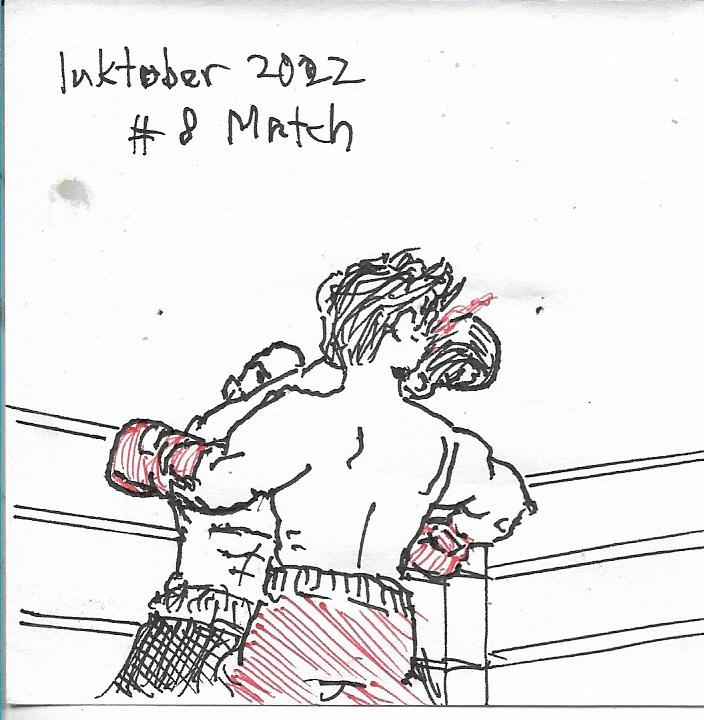 Inktober 2022
# 8 Match